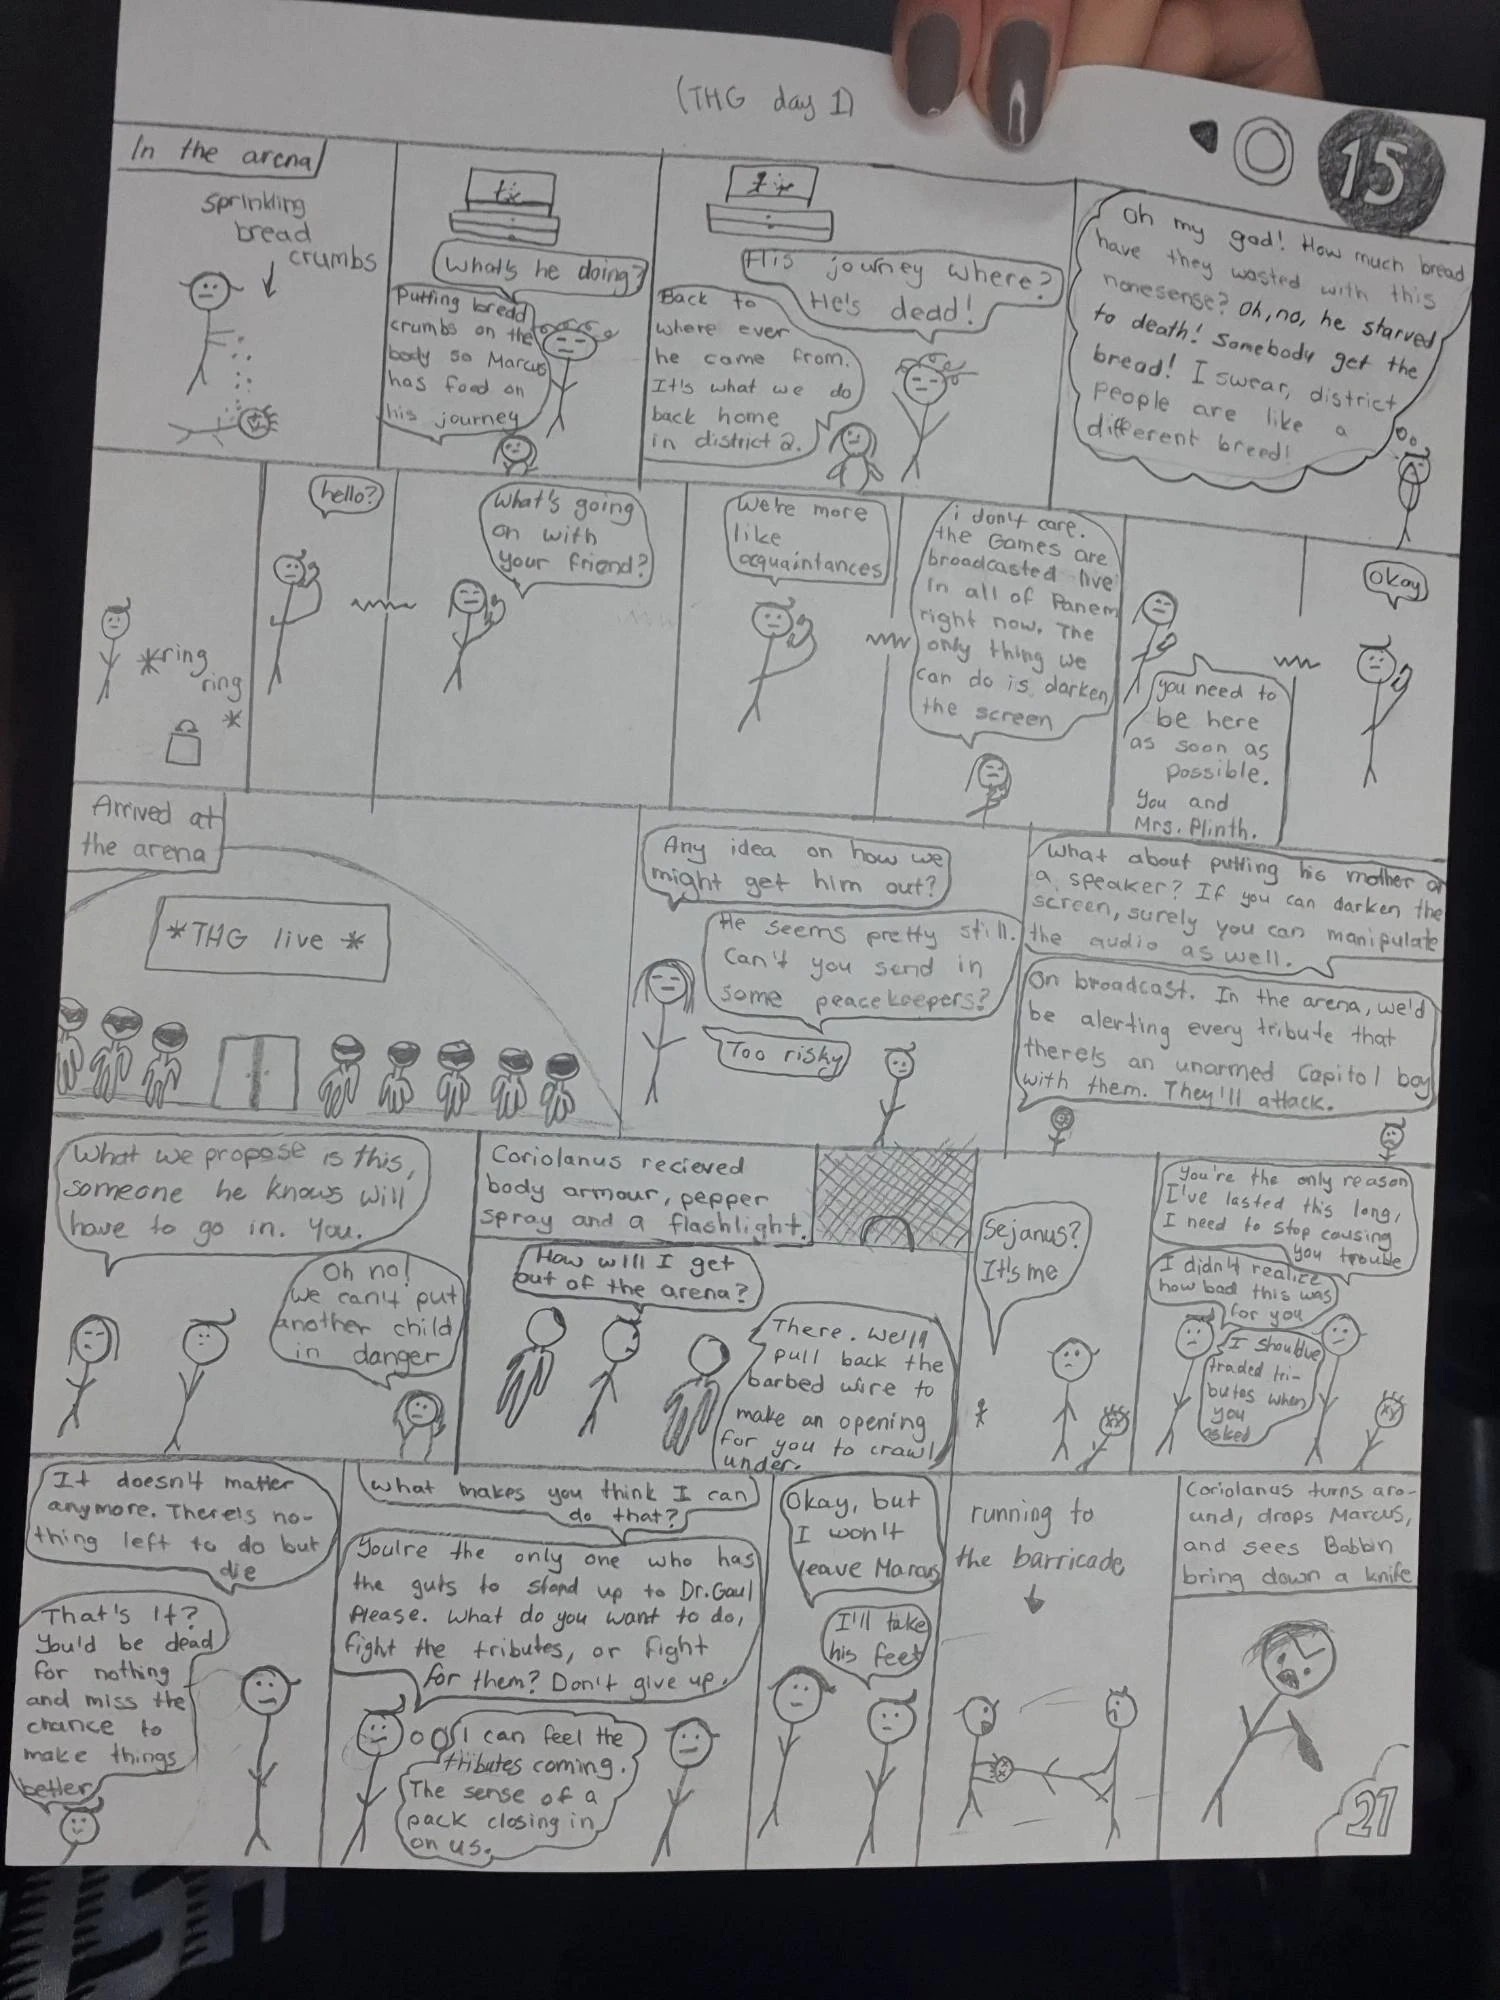 (THG day 1)
15
In the arena
sprinkling
bread
crumbs
What's he doing?
Putting bread
crumbs on the
body so Marcus
has food on
his journey
His journey where?
He's dead!
Back to
where ever
he came from.
It's what we do
back home
in district 2.
Oh my god! How much bread
have they wasted with this
nonesense? Oh, no, he starved
to death! Somebody get the
bread! I swear, district
people are like a
different breed!
*ring
ring
*
hello?
What's going
on with
your friend?
We're more
like
acquaintances
i don't care.
the Games are
broadcasted live
in all of Panem
right now. The
only thing we
can do is darken
the screen
you need to
be here
as soon as
possible.
You and
Mrs. Plinth.
Okay
Arrived at
the arena
*THG live *
Any idea on how we
might get him out?
He seems pretty still.
Can't you send in
some peacekeepers?
Too risky
What about putting his mother on
a speaker? If you can darken the
screen, surely you can manipulate
the audio as well.
On broadcast. In the arena, we'd
be alerting every tribute that
there's an unarmed Capitol boy
with them. They'll attack.
What we propose is this,
someone he knows will
have to go in. You.
Oh no!
we can't put
another child
in danger
Coriolanus recieved
body armour, pepper
spray and a flashlight.
How will I get
out of the arena?
There. We'll
pull back the
barbed wire to
make an opening
for you to crawl
under.
Sejanus?
It's me
You're the only reason
I've lasted this long,
I need to stop causing
you trouble
I didn't realize
how bad this was
for you
I should've
traded tri-
butes when
you
asked
It doesn't matter
anymore. There's no-
thing left to do but
die
That's it?
You'd be dead
for nothing
and miss the
chance to
make things
better
What makes you think I can
do that?
You're the only one who has
the guts to stand up to Dr. Gaul
Please. What do you want to do,
fight the tributes, or fight
for them? Don't give up.
I can feel the
tributes coming.
The sense of a
pack closing in
on us.
Okay, but
I won't
leave Marcus
I'll take
his feet
running to
the barricade
Coriolanus turns aro-
und, drops Marcus,
and sees Bobbin
bring down a knife
27